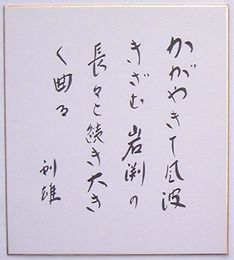 かがやきて風波
きざむ岩渕の
長々と続き大き
く曲る
利雄